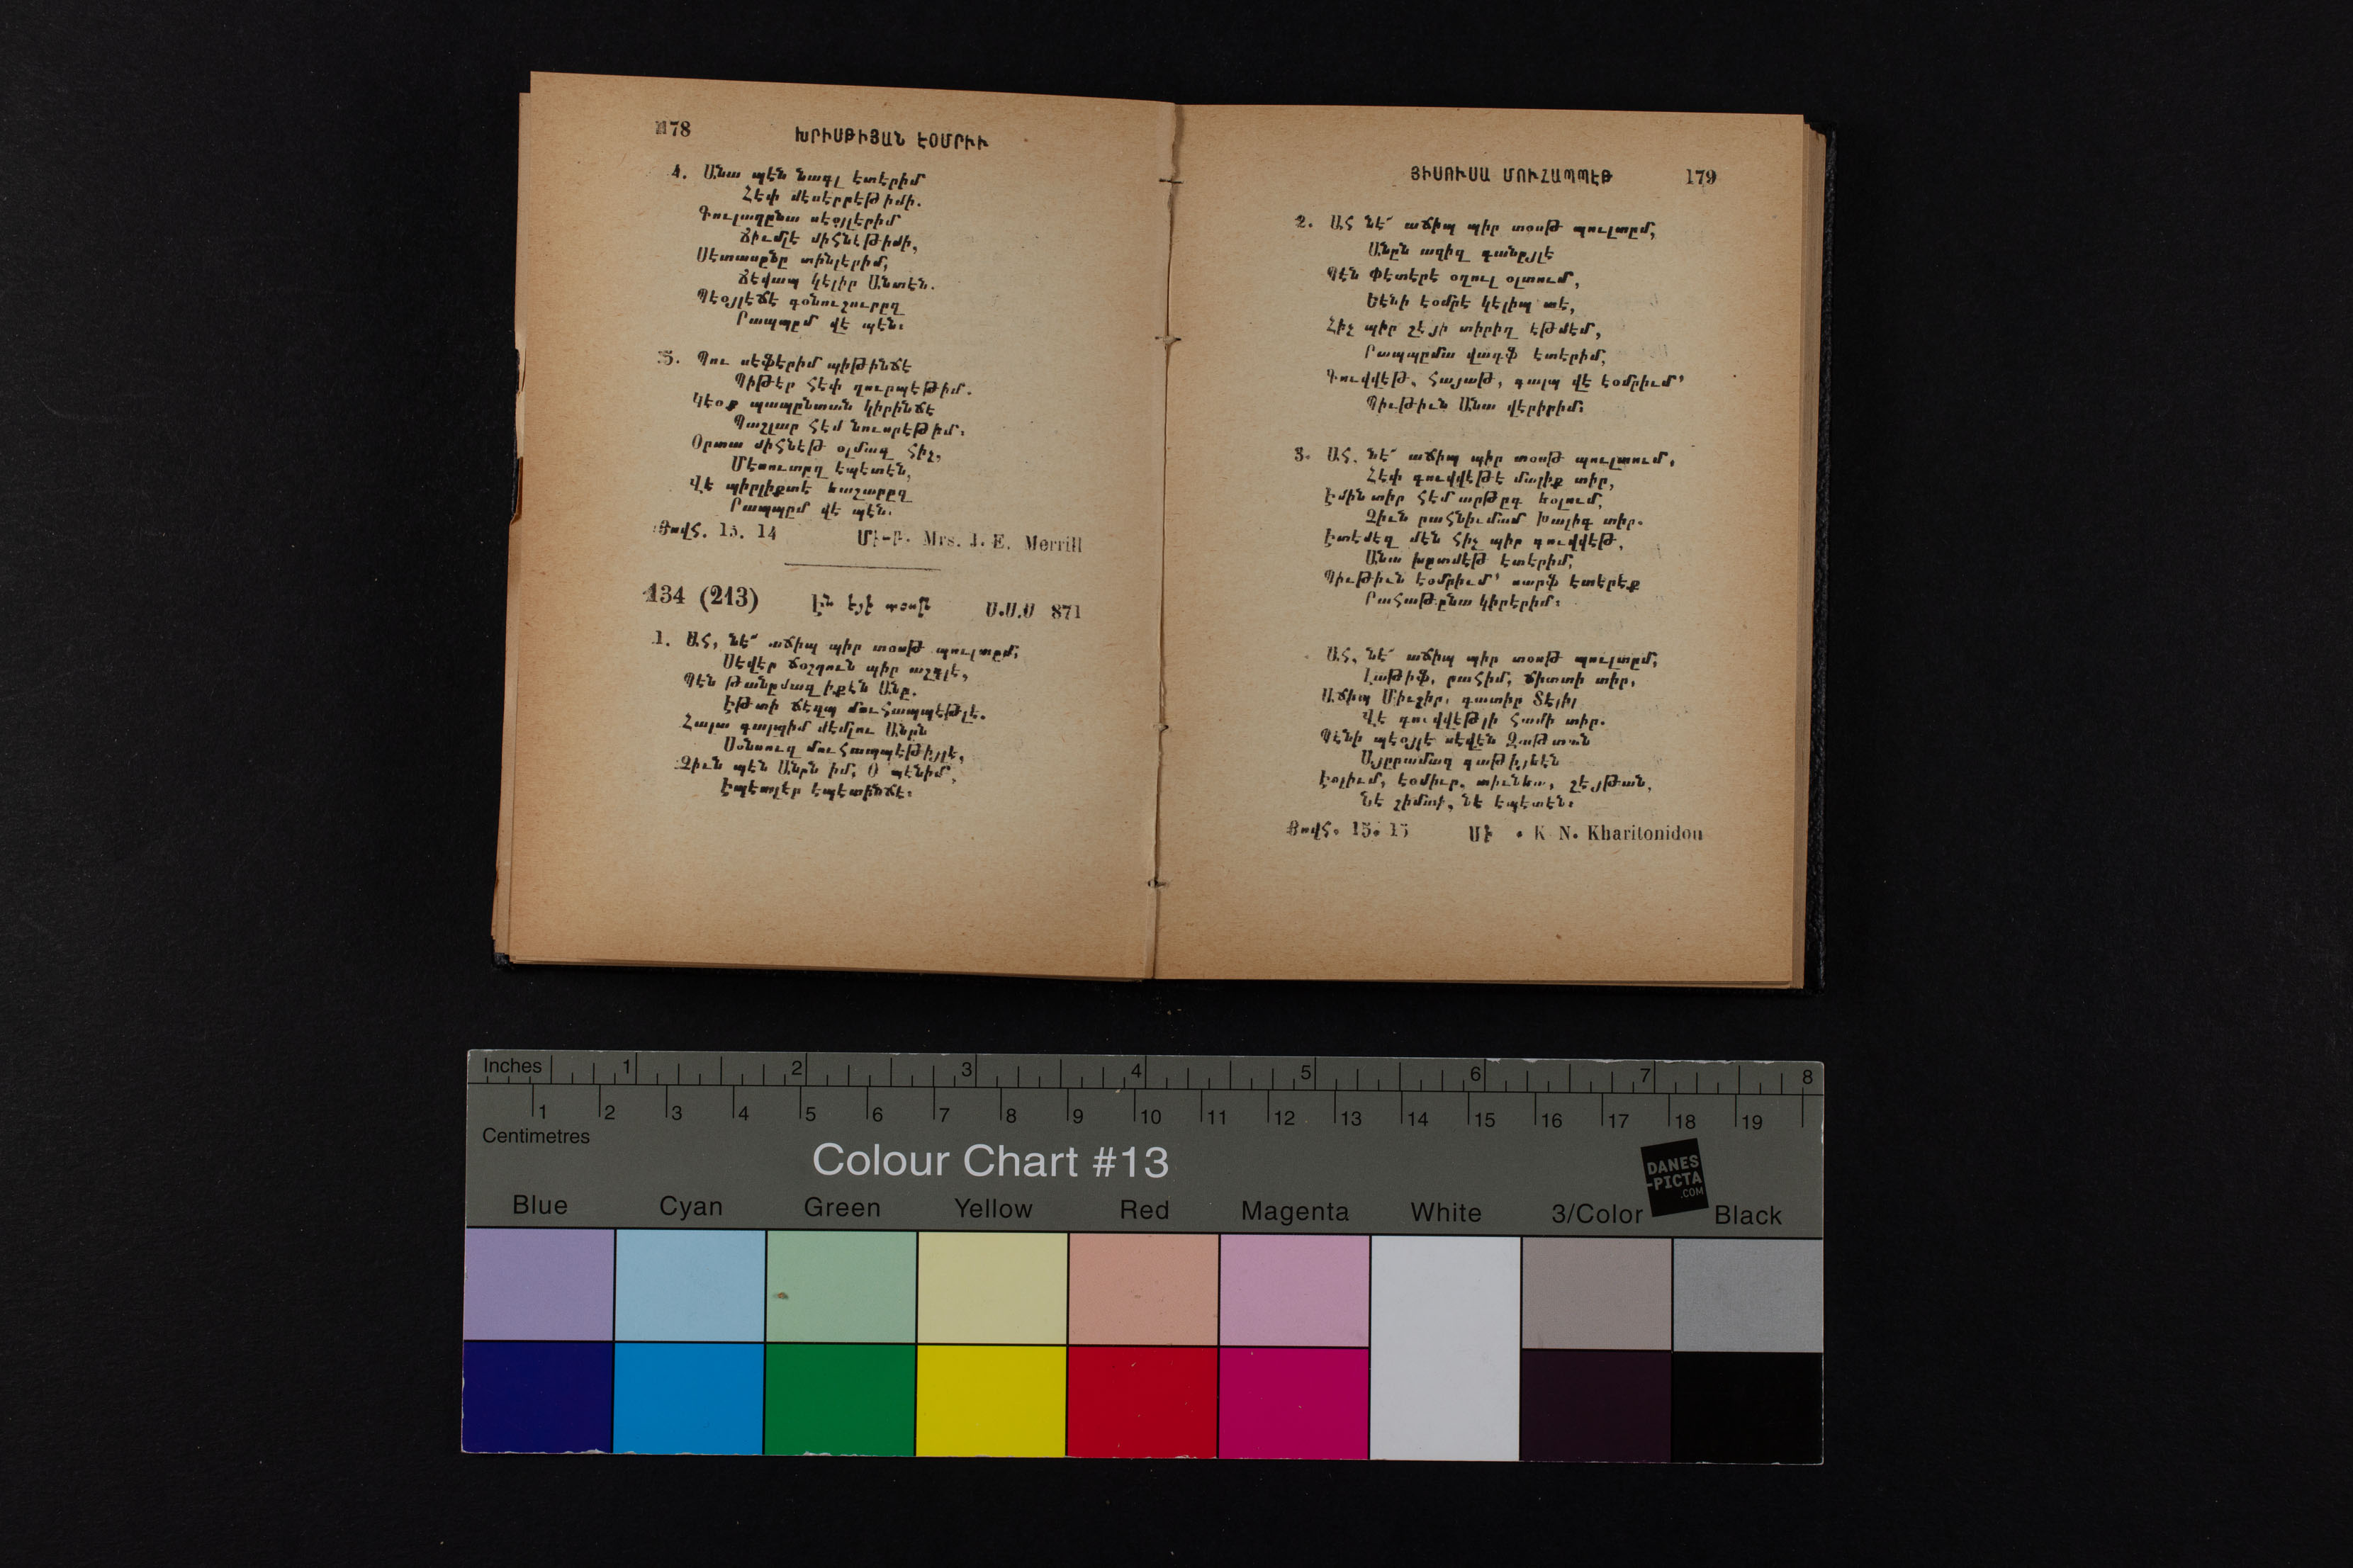 178 ԽՐԻՍԹԻՅԱՆ ԷՕՄՐԻԻ
4. Անա պէն նագլ էտէրիմ
Հէփ մէսէրրէթիմի.
Գուլաղընա սէօյլէրիմ
Ճիւմլէ միհնէթիմի,
Սէտասընը տինլէրիմ,
Ճէվապ կէլիր Անտէն.
Պէօյլէճէ գօնուշուրըզ
Րապպըմ վէ պէն։
5. Պու սէֆէրիմ պիթինճէ
Պիթէր հէփ ղուրպէթիմ.
Կէօք պապընտան կիրինճէ
Պաշլար հէմ նուսրէթիմ։
Օրտա միհնէթ օլմազ հիչ,
Մէսուտըզ էպէտէն,
Վէ պիրլիքտէ եաշարըզ
Րապպըմ վէ պէն.
Յովհ. 15. 14 Մէ-Ր. Mrs. J. E. Merrill
134 (213) Էն էյի տօսթ Ս.Ս.Ս 871
1. Ահ, նէ՜ աճիպ պիր տօսթ պուլտըմ;
Սէվէր ճօշղուն պիր աշգլէ,
Պէն թանըմազ իքէն Անը.
Էթտի ճէզպ մուհապպէթլէ.
Հալա գալպիմ մէմլու Անըն
Սօնսուզ մուհապպէթիյլէ,
Զիւն պէն Անըն իմ, Օ պէնիմ,
Էպէտլէր էպէտինճէ։
ՅԻՍՈՒՍԱ ՄՈՒՀԱՊՊԷԹ 179
2. Ահ նէ՜ աճիպ պիր տօսթ պուլտըմ,
Անըն ազիզ գանըյլէ
Պէն Փէտէրէ օղուլ օլտում,
Եէնի էօմրէ կէլիպ տէ,
Հիչ պիր շէյի տիրիղ էթմէմ,
Րապպըմա վագֆ էտէրիմ,
Գուվվէթ, հայաթ, գալպ վէ էօմրիւմ՚
Պիւթիւն Անա վէրիրիմ։
3. Ահ, նէ՜ աճիպ պիր տօսթ պուլտում,
Հէփ գուվվէթէ մալիք տիր,
Էմին տիր հէմ արթըգ եօլում,
Զիւն րահնիւմամ Խալիգ տիր.
Էտէմէզ մէն հիչ պիր գուվվէթ,
Անա խըտմէթ էտէրիմ,
Պիւթիւն էօմրիւմ՚ սարֆ էտէրէք
Րահաթընա կիրէրիմ։
Ահ, նէ՜ աճիպ պիր տօսթ պուլտըմ,
Լաթիֆ, րահիմ, ճիտտի տիր,
Աճիպ Միւշիր, գատիր Տէլիլ
Վէ գուվվէթլի համի տիր.
Պէնի պէօյլէ սէվէն Զաթտան
Այըրամազ գաթիյեէն
Էօլիւմ, էօմիւր, տիւնեա, շէյթան,
Նէ շիմտի, նէ էպէտէն։
Յովհ. 15. 15 Մէ . K N. Kharitonidou
Inches 1 2 3 4 5 6 7 8
1 2 3 4 5 6 7 8 9 10 11 12 13 14 15 16 17 18 19
Centimetres
Colour Chart #13
DANES
-PICTA
.COM
Blue Cyan Green Yellow Red Magenta White 3/Color Black